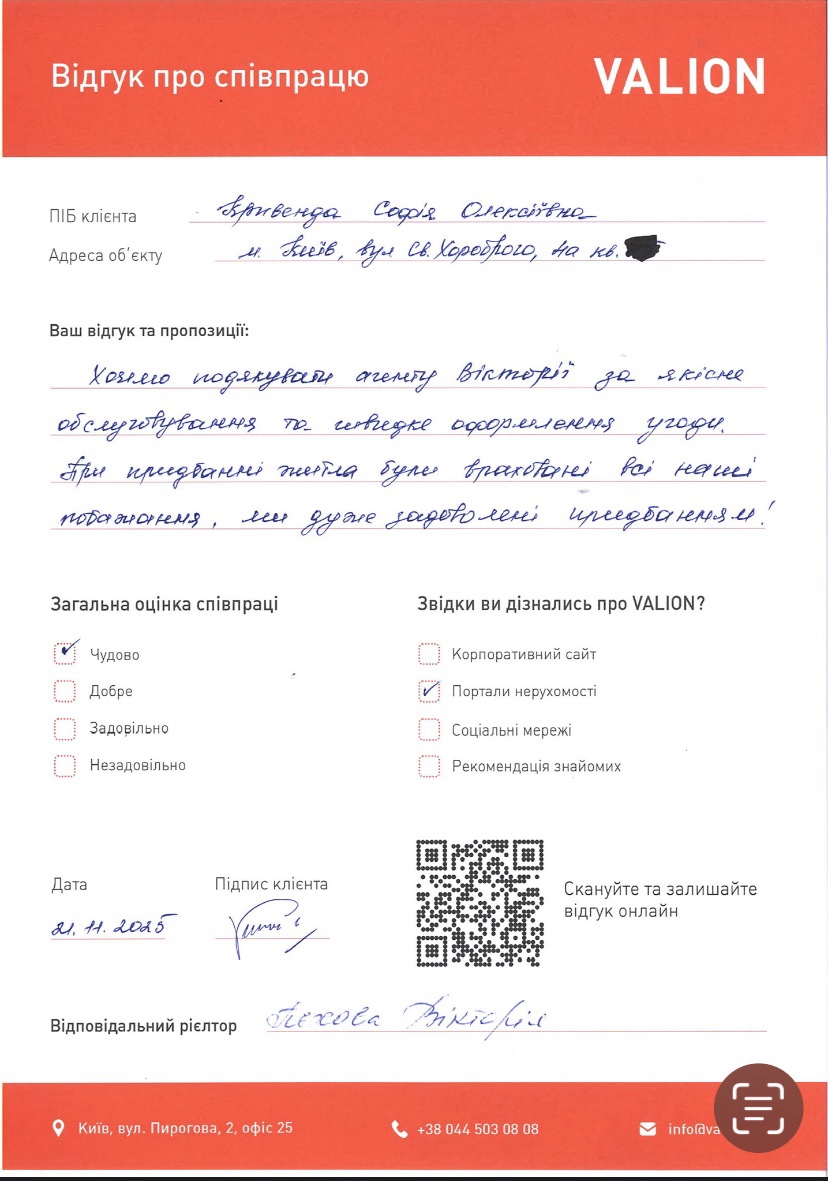 Відгук про співпрацю
VALION
ПІБ клієнта Кривенда Софія Олексіївна
Адреса об'єкту м. Київ, вул Св. Хороброго, 4а кв.
Ваш відгук та пропозиції:
Хочемо подякувати агенту Вікторії за якісне
обслуговування та швидке оформлення угоди.
При придбанні житла були враховані всі наші
побажання, ми дуже задоволені придбанням!
Загальна оцінка співпраці
Чудово
Добре
Задовільно
Незадовільно
Звідки ви дізнались про VALION?
Корпоративний сайт
Портали нерухомості
Соціальні мережі
Рекомендація знайомих
Дата
21.11.2025
Підпис клієнта
Скануйте та залишайте
відгук онлайн
Відповідальний рієлтор Вікторія
Київ, вул. Пирогова, 2, офіс 25
+38 044 503 08 08
info@va